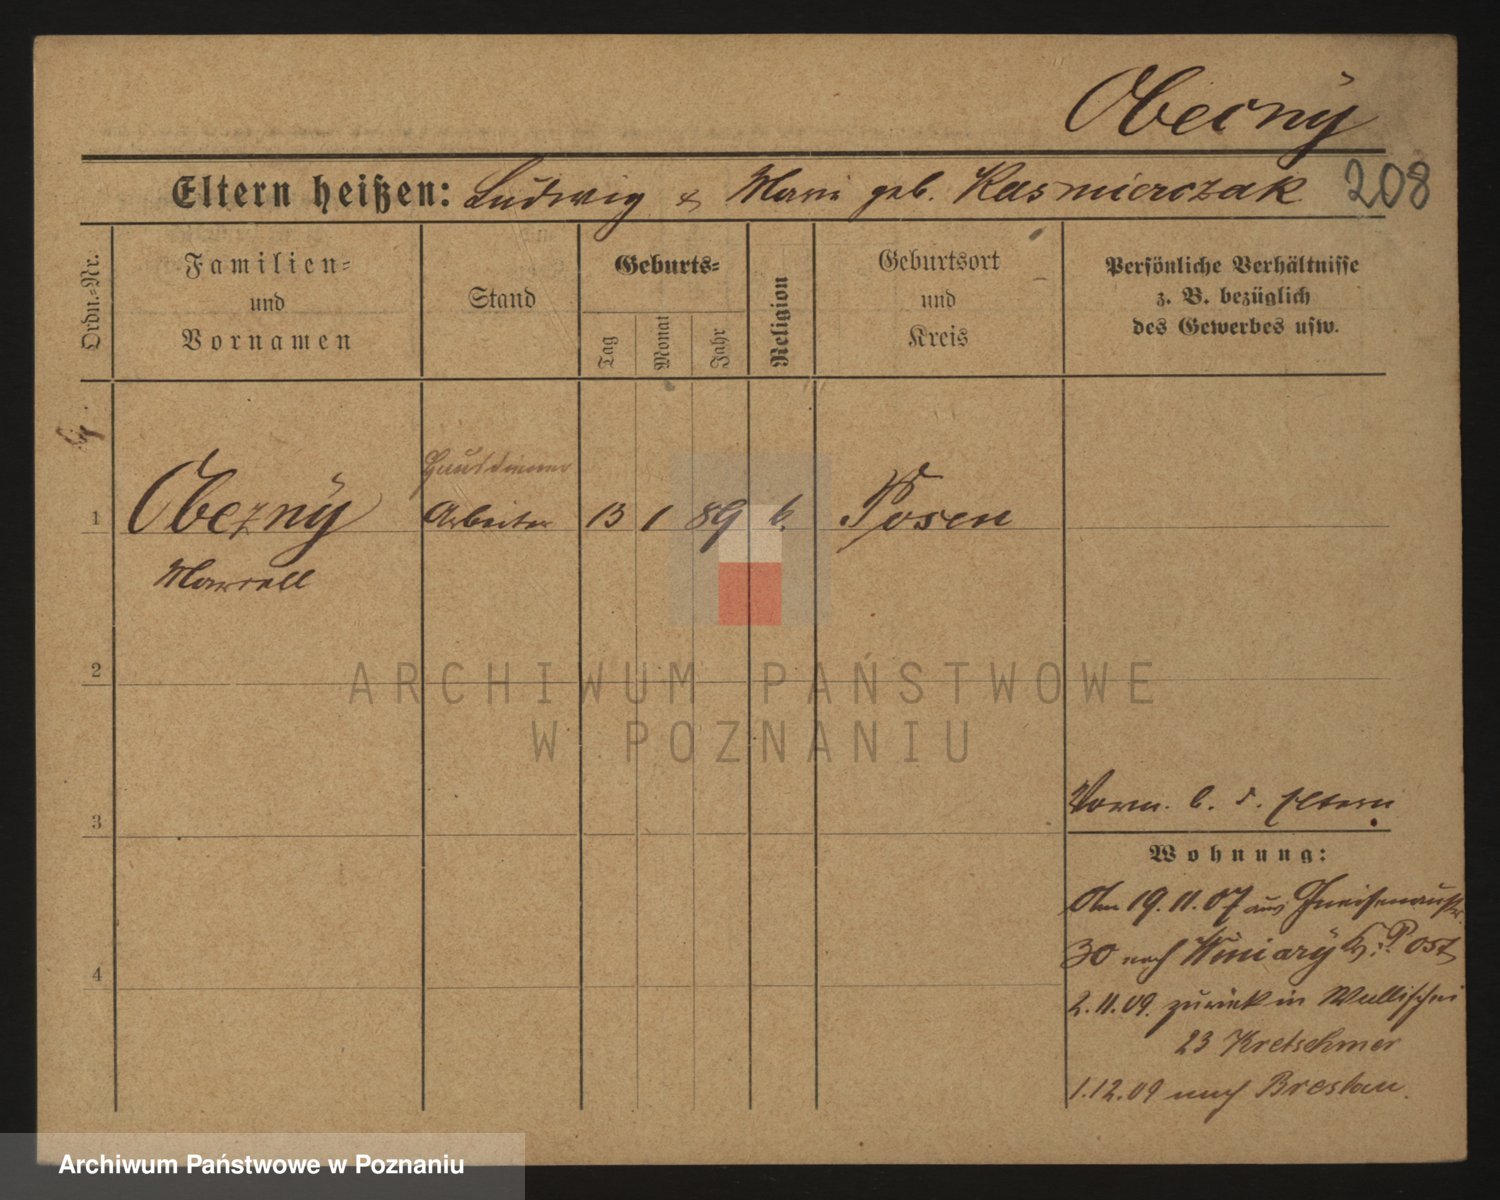 Obecny
Eltern heißen: Ludwig & Marie geb. Kasmierczak 208
Ordn.-Nr.
Familien-
und
Vornamen
Stand
Geburts-
Tag
Monat
Jahr
Religion
Geburtsort
und
Kreis
Persönliche Verhältnisse
z. B. bezüglich
des Gewerbes usw.
1 Obezny Arbeiter 13 1 89 k. Posen
Marcell
2
3
4
Vorm. b. d. Eltern
Wohnung:
Am 19.11.07 aus Gneisenaustr.
30 nach Winiary Kr. P. Ost
2.11.09. zurück in Wallischei
23 Kretschmer
1.12.09 nach Breslau.
ARCHIWUM PAŃSTWOWE
W POZNANIU
Archiwum Państwowe w Poznaniu